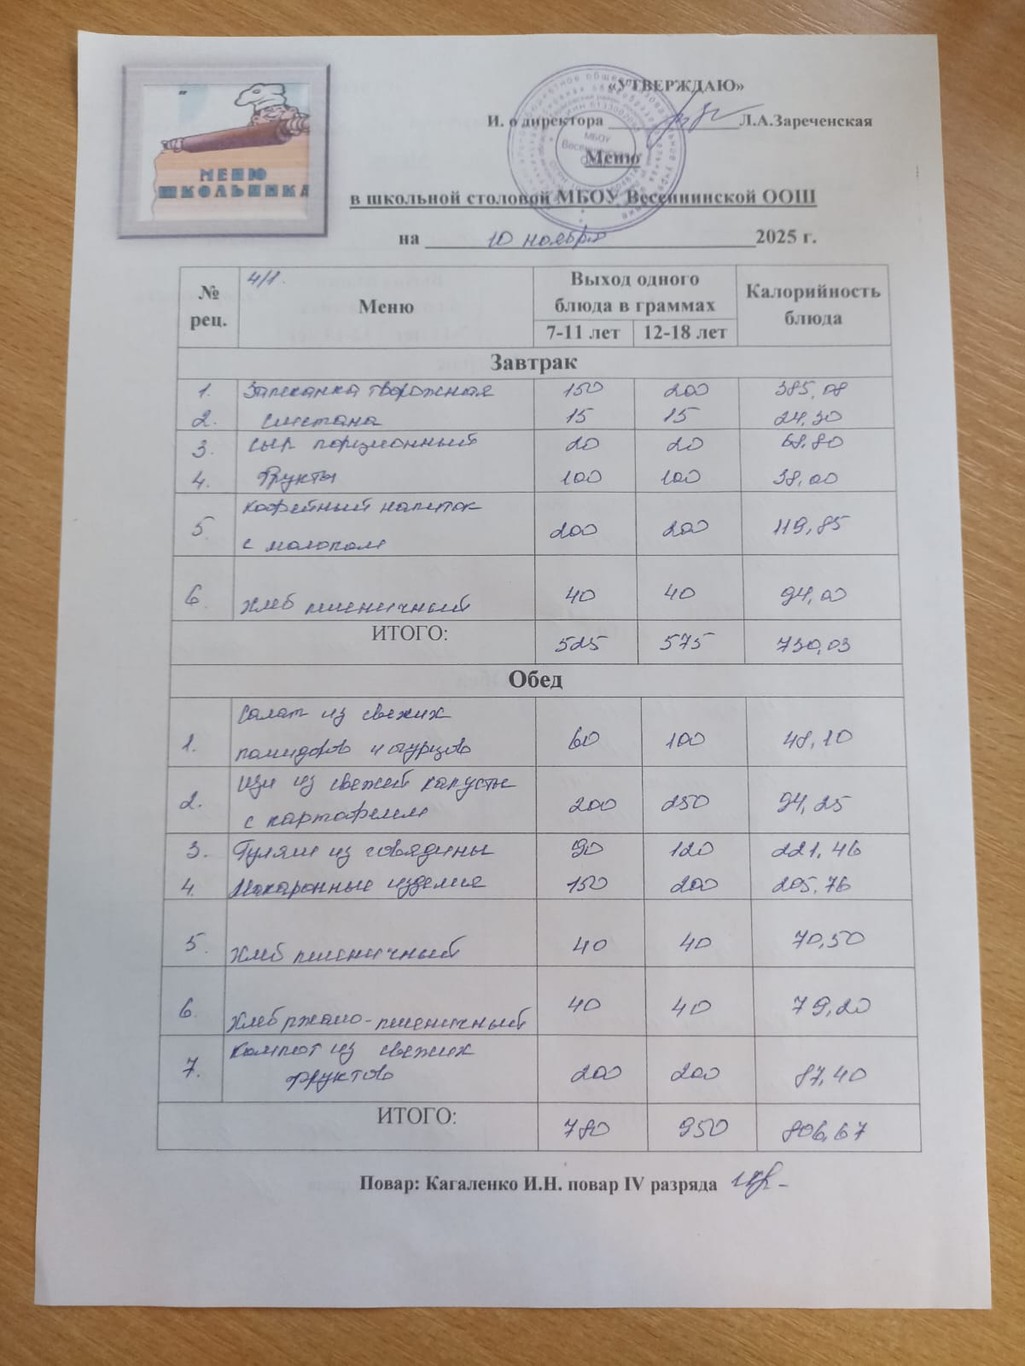 МЕНЮ
ШКОЛЬНИКА
«УТВЕРЖДАЮ»
И. о директора Л.А.Зареченская
Меню
в школьной столовой МБОУ Весеннинской ООШ
на 10 ноября 2025 г.
№ рец. 4/1. Меню Выход одного блюда в граммах Калорийность блюда
7-11 лет 12-18 лет
Завтрак
1. Запеканка творожная 150 200 385,08
2. Сметана 15 15 24,30
3. Сыр порционный 20 20 68.80
4. Фрукты 100 100 38,00
5. Кофейный напиток
с молоком 200 200 119,85
6. Хлеб пшеничный 40 40 94,00
ИТОГО: 525 575 730,03
Обед
1. Салат из свежих
помидоров и огурцов 60 100 48,10
2. Щи из свежей капусты
с картофелем 200 250 94,25
3. Гуляш из говядины 90 120 221,46
4. Макаронные изделия 150 200 205,76
5. Хлеб пшеничный 40 40 70,50
6. Хлеб ржано-пшеничный 40 40 79,20
7. Компот из свежих
фруктов 200 200 87,40
ИТОГО: 780 950 806,67
Повар: Кагаленко И.Н. повар IV разряда